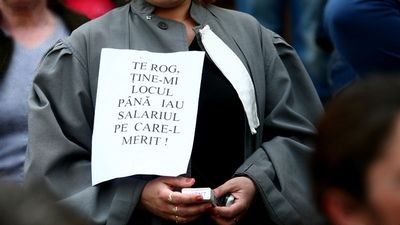 TE ROG,
ȚINE-MI
LOCUL
PÂNĂ IAU
SALARIUL
PE CARE-L
MERIT !